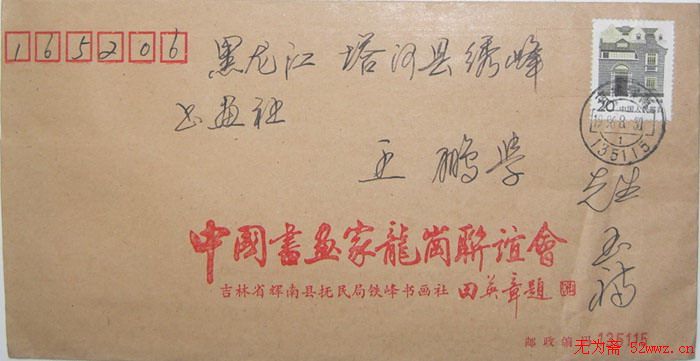 165206
黑龙江 塔河县绣峰
书画社
王 鹏学
先生
玉祯
20 中国人民邮政
1996.8.30
1
135115
中國書画家龍崗聯誼會
吉林省辉南县抚民局铁峰书画社 田英章題
邮政编码 135115
无为斋 52wwz.cn